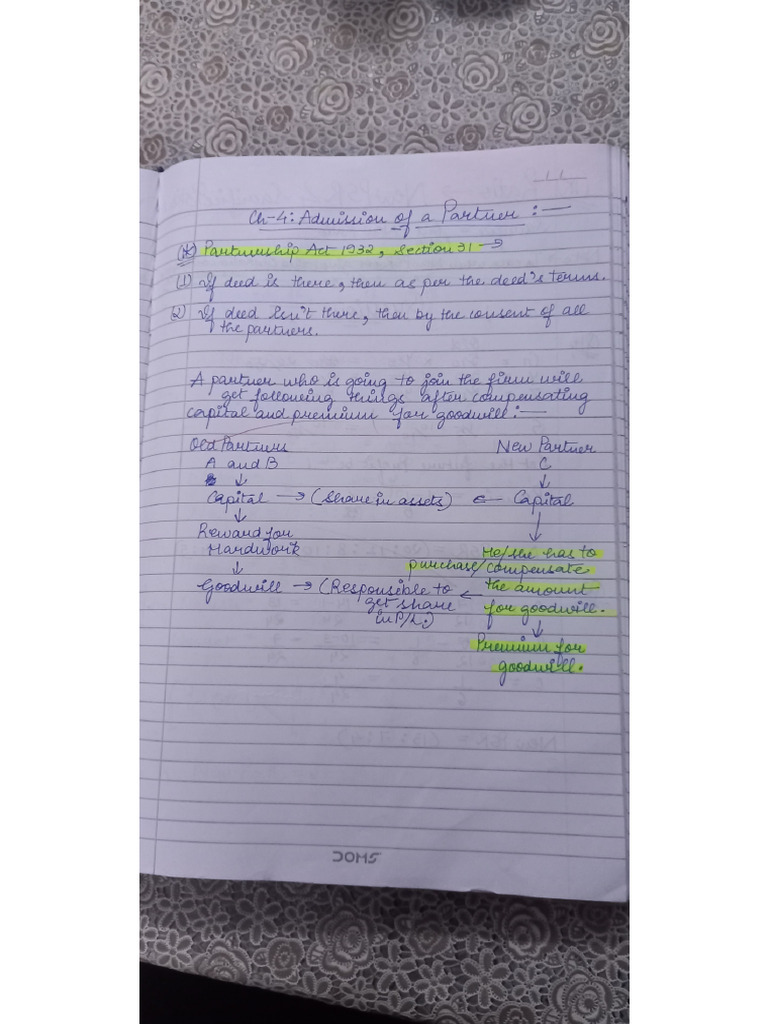 Ch-4: Admission of a Partner :—
(*) Partnership Act 1932, Section 31 →
(1) If deed is there, then as per the deed's terms.
(2) If deed isn't there, then by the consent of all
the partners.
A partner who is going to join the firm will
get following things after compensating
capital and premium for goodwill :—
Old Partners New Partner
A and B C
↓ ↓
Capital → (Share in assets) ← Capital
↓ ↓
Reward for
Hardwork He/she has to
↓ purchase/compensate
Goodwill → (Responsible to ← the amount
get share for goodwill.
in P/L.) ↓
Premium for
goodwill.
DOMS